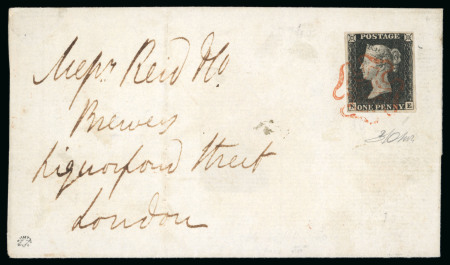 Messrs Reid & Co.
Brewers
Liquorpond Street
London
POSTAGE
ONE PENNY